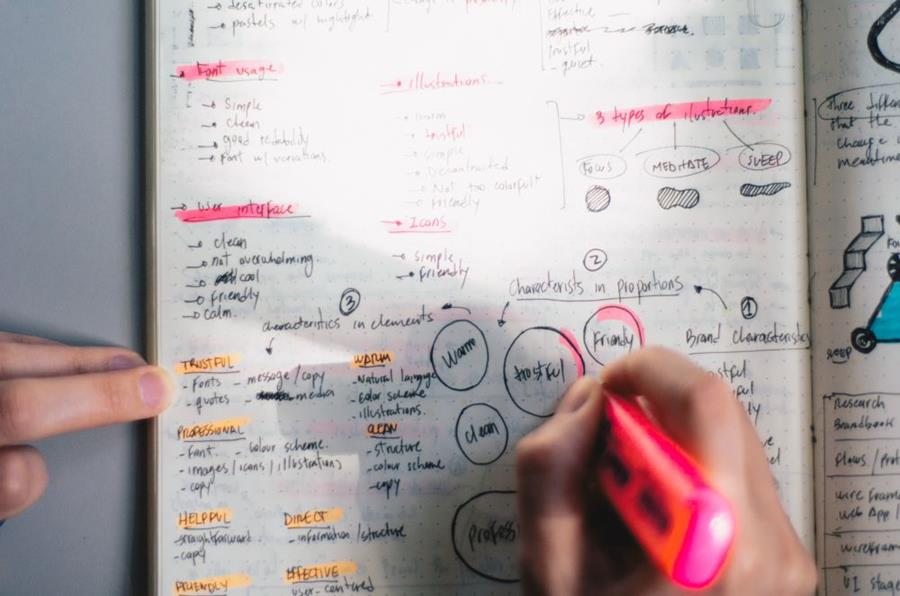 desaturated colors
pastels w/ hightlight
Effective
trustful
- quiet.
Font usage
Simple
clean
good readability
Font w/ variations
illustrations
warm
trustful
simple
Deconstructed
Not too colorful
Friendly
3 types of ilustrations.
FOCUS
MEDITATE
SLEEP
User interface
clean
not overwhelming
cool
Friendly
calm.
Icons
Simple
Friendly
2
Characterists in proportions
3
characteristics in elements
1
Brand Characteristics
TRUSTFUL
- Fonts - message / copy
- quotes - media
WARM
- Natural language
- color scheme
- illustrations.
PROFESSIONAL
- Font - colour scheme.
- images / icons / illustrations
- copy
CLEAN
- structure
- colour scheme
- copy
HELPFUL
- straightforward
- copy
DIRECT
- information / structure
FRIENDLY
EFFECTIVE
user-centered
Warm
trustful
Friendly
clean
Three differen
that the
change
meantime
SLEEP
Research
Brandbook
Flows / Prot
wire frame
Web App /
wireframe
UI stage